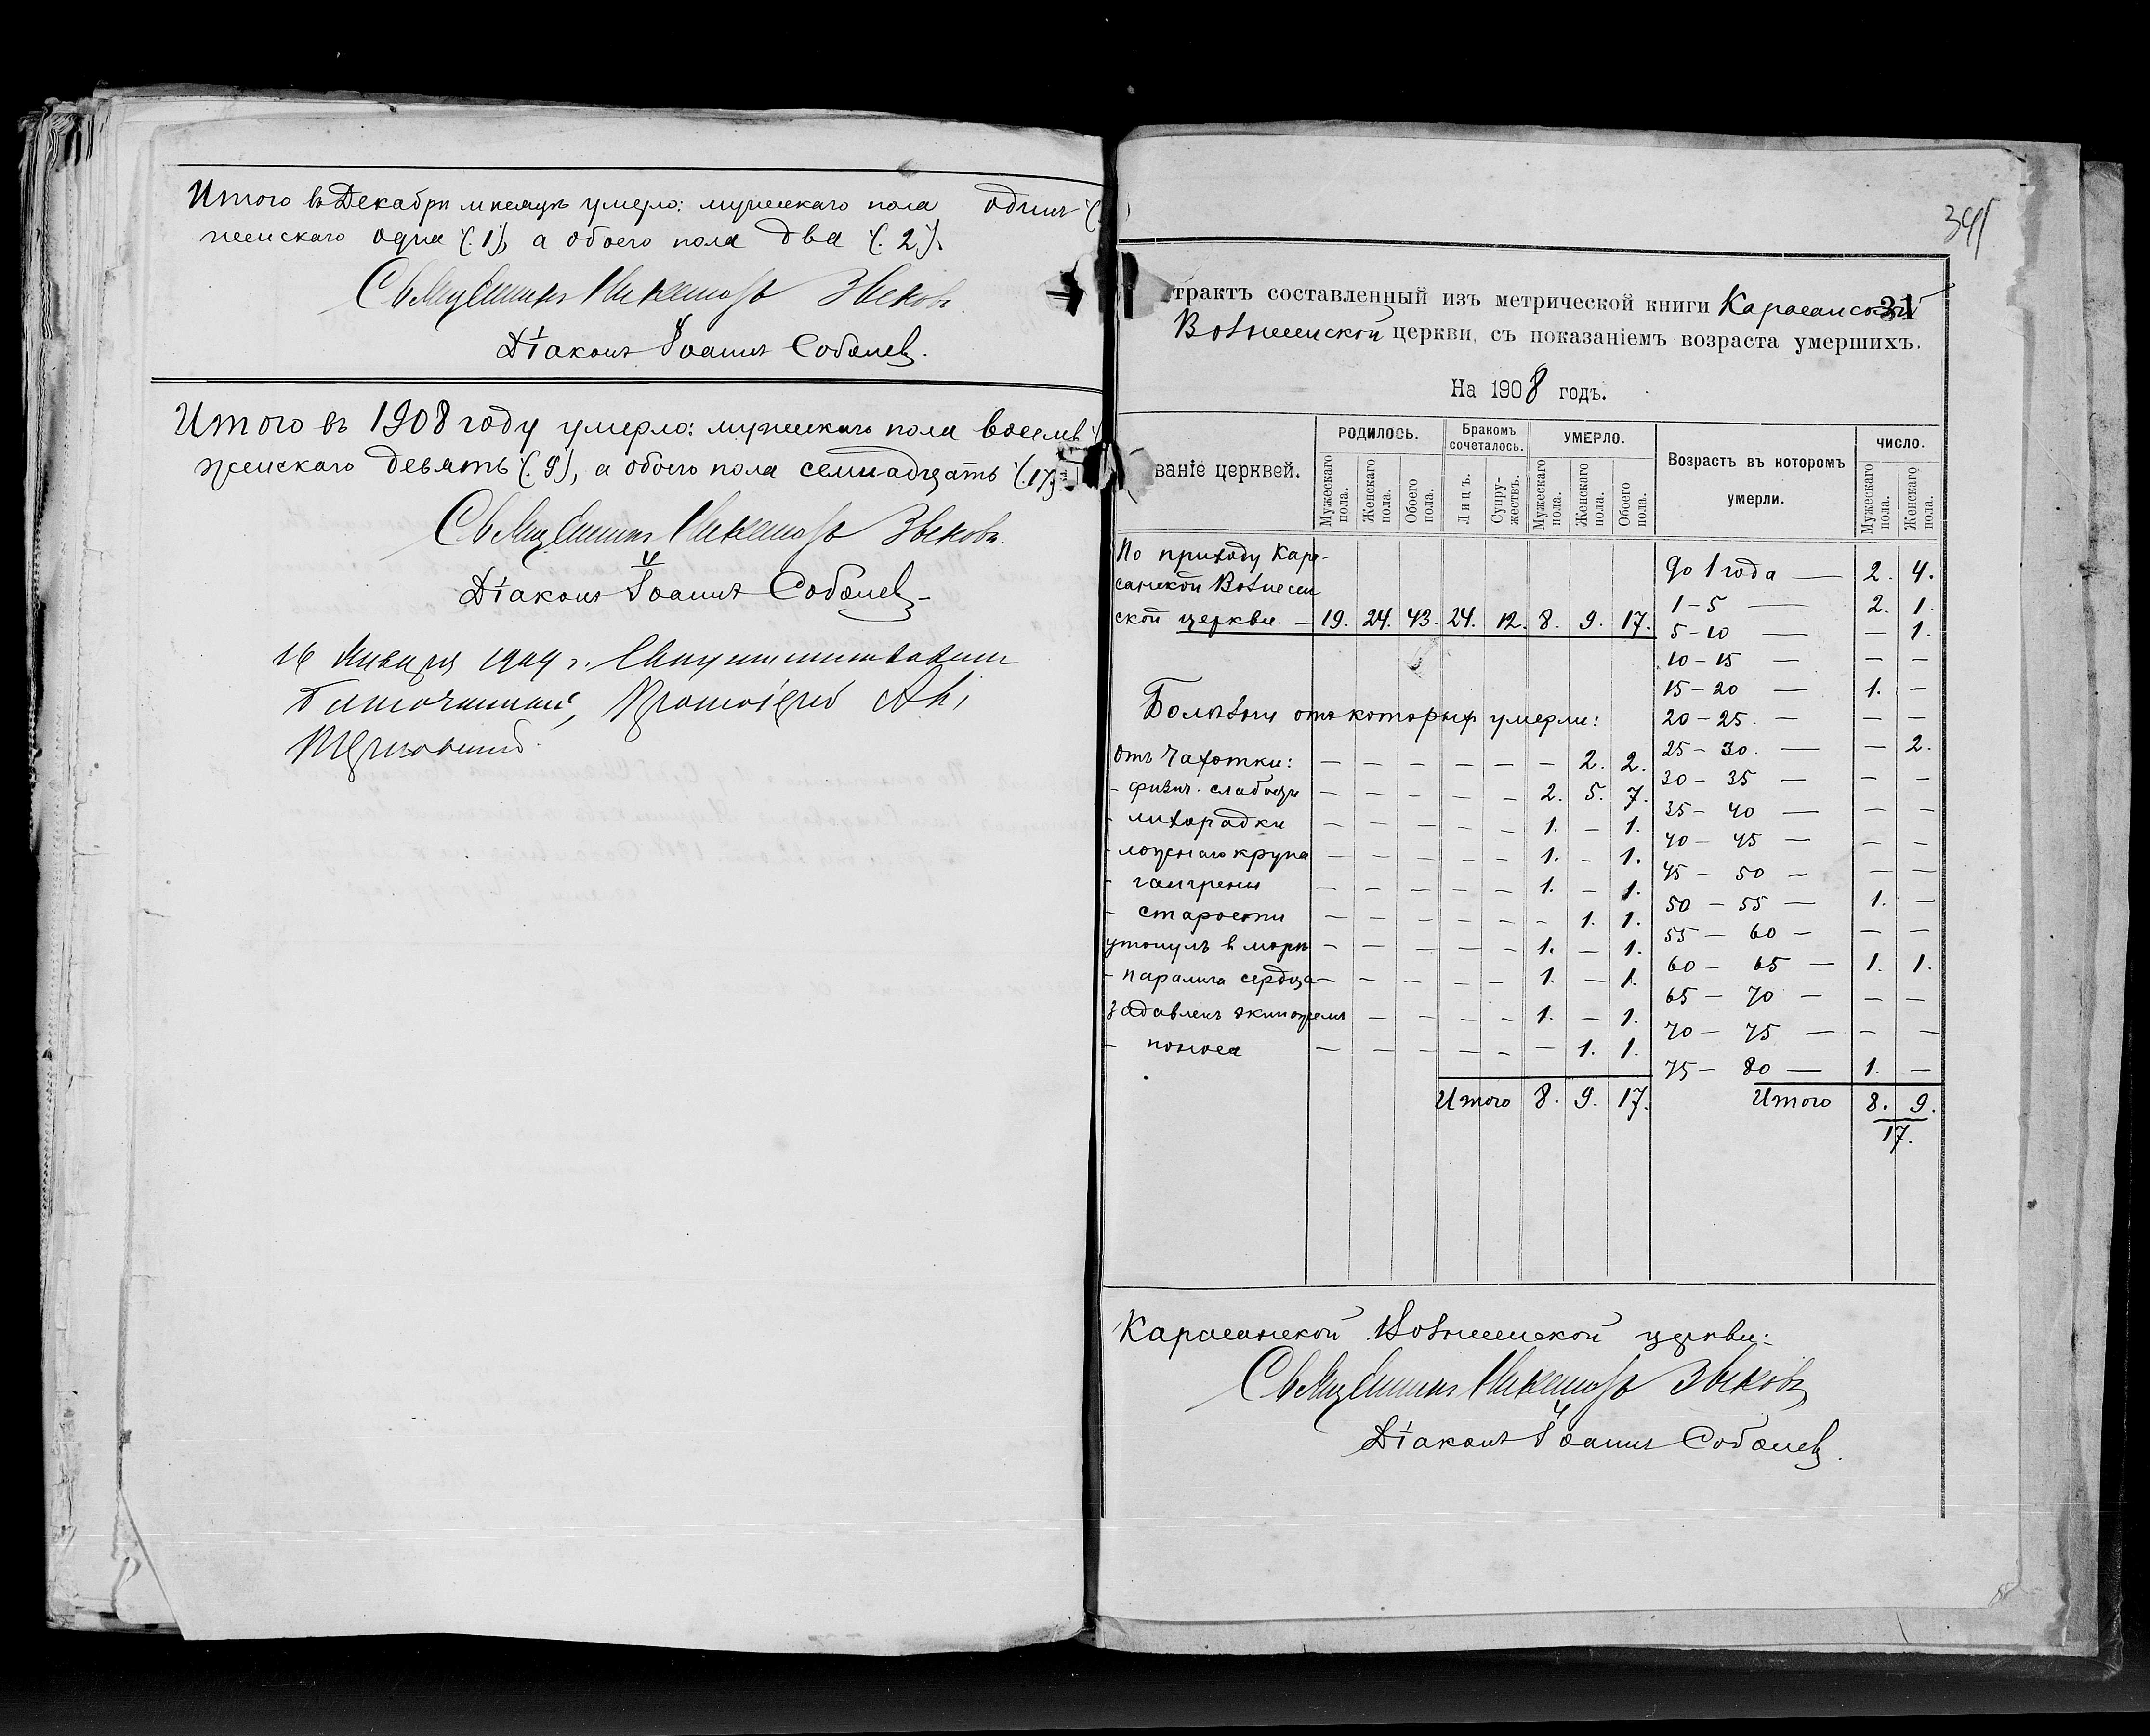 Итого въ Декабрѣ мѣсяцѣ умерло: мужескаго пола одинъ
женскаго одна (1), а обоего пола два (2).
Священникъ Никаноръ Зыковъ
Діаконъ Іоаннъ Соболевъ.
Итого въ 1908 году умерло: мужескаго пола восемь
женскаго девять (9), а обоего пола семнадцать (17)
Священникъ Никаноръ Зыковъ.
Діаконъ Іоаннъ Соболевъ
16 Января 1909 г.
Благочинный, Протоіерей
341
31
трактъ составленный изъ метрической книги Карасанской
Вознесенской церкви, съ показаніемъ возраста умершихъ.
На 1908 годъ.
ваніе церквей.
РОДИЛОСЬ.
Бракомъ сочеталось.
УМЕРЛО.
Возрастъ въ которомъ умерли.
ЧИСЛО.
Мужескаго пола.
Женскаго пола.
Обоего пола.
Лицъ.
Супружествъ.
Мужескаго пола.
Женскаго пола.
Обоего пола.
Мужескаго пола.
Женскаго пола.
По приходу Кара-
санской Вознесен
ской церкви. — 19. 24. 43. 24. 12. 8. 9. 17.
Болѣзни отъ которыхъ умерли:
Отъ чахотки: — — — — — — 2. 2.
- физич. слабости — — — — — 2. 5. 7.
- лихорадки — — — — — 1. — 1.
- ложнаго крупа — — — — — 1. — 1.
- гангрены — — — — — 1. — 1.
- старости — — — — — — 1. 1.
утонулъ въ морѣ — — — — — 1. — 1.
- паралича сердца — — — — — 1. — 1.
задавленъ экипажемъ — — — — 1. — 1.
- поноса — — — — — — 1. 1.
Итого 8. 9. 17.
до 1 года — 2. 4.
1-5 — 2. 1.
5-10 — — 1.
10-15 — — —
15-20 — 1. —
20-25. — — —
25-30. — — 2.
30-35 — — —
35-40 — — —
40-45 — — —
45-50 — — —
50-55 — 1. —
55-60 — — —
60-65 — 1. 1.
65-70 — — —
70-75 — — —
75-80 — 1. —
Итого 8. 9.
17.
Карасанской Вознесенской церкви:
Священникъ Никаноръ Зыковъ
Діаконъ Іоаннъ Соболевъ.